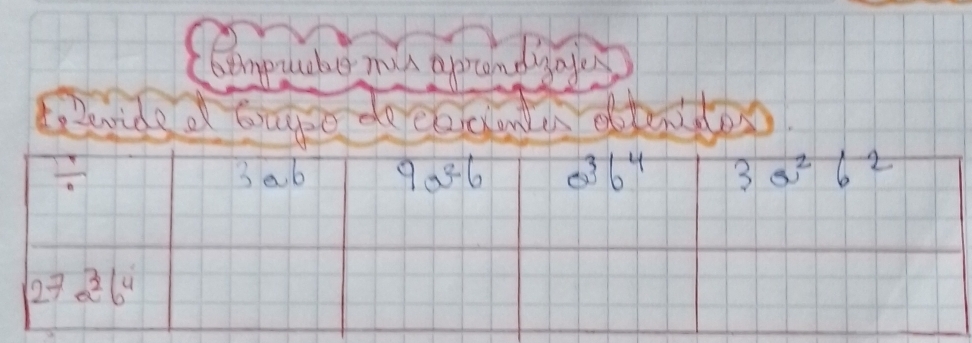 Compruebo mis aprendizajes
1. Devide el Grupo de cocientes obtenidos.
÷ 3ab 9a²b a³b⁴ 3 a² b²
27 a³b⁴